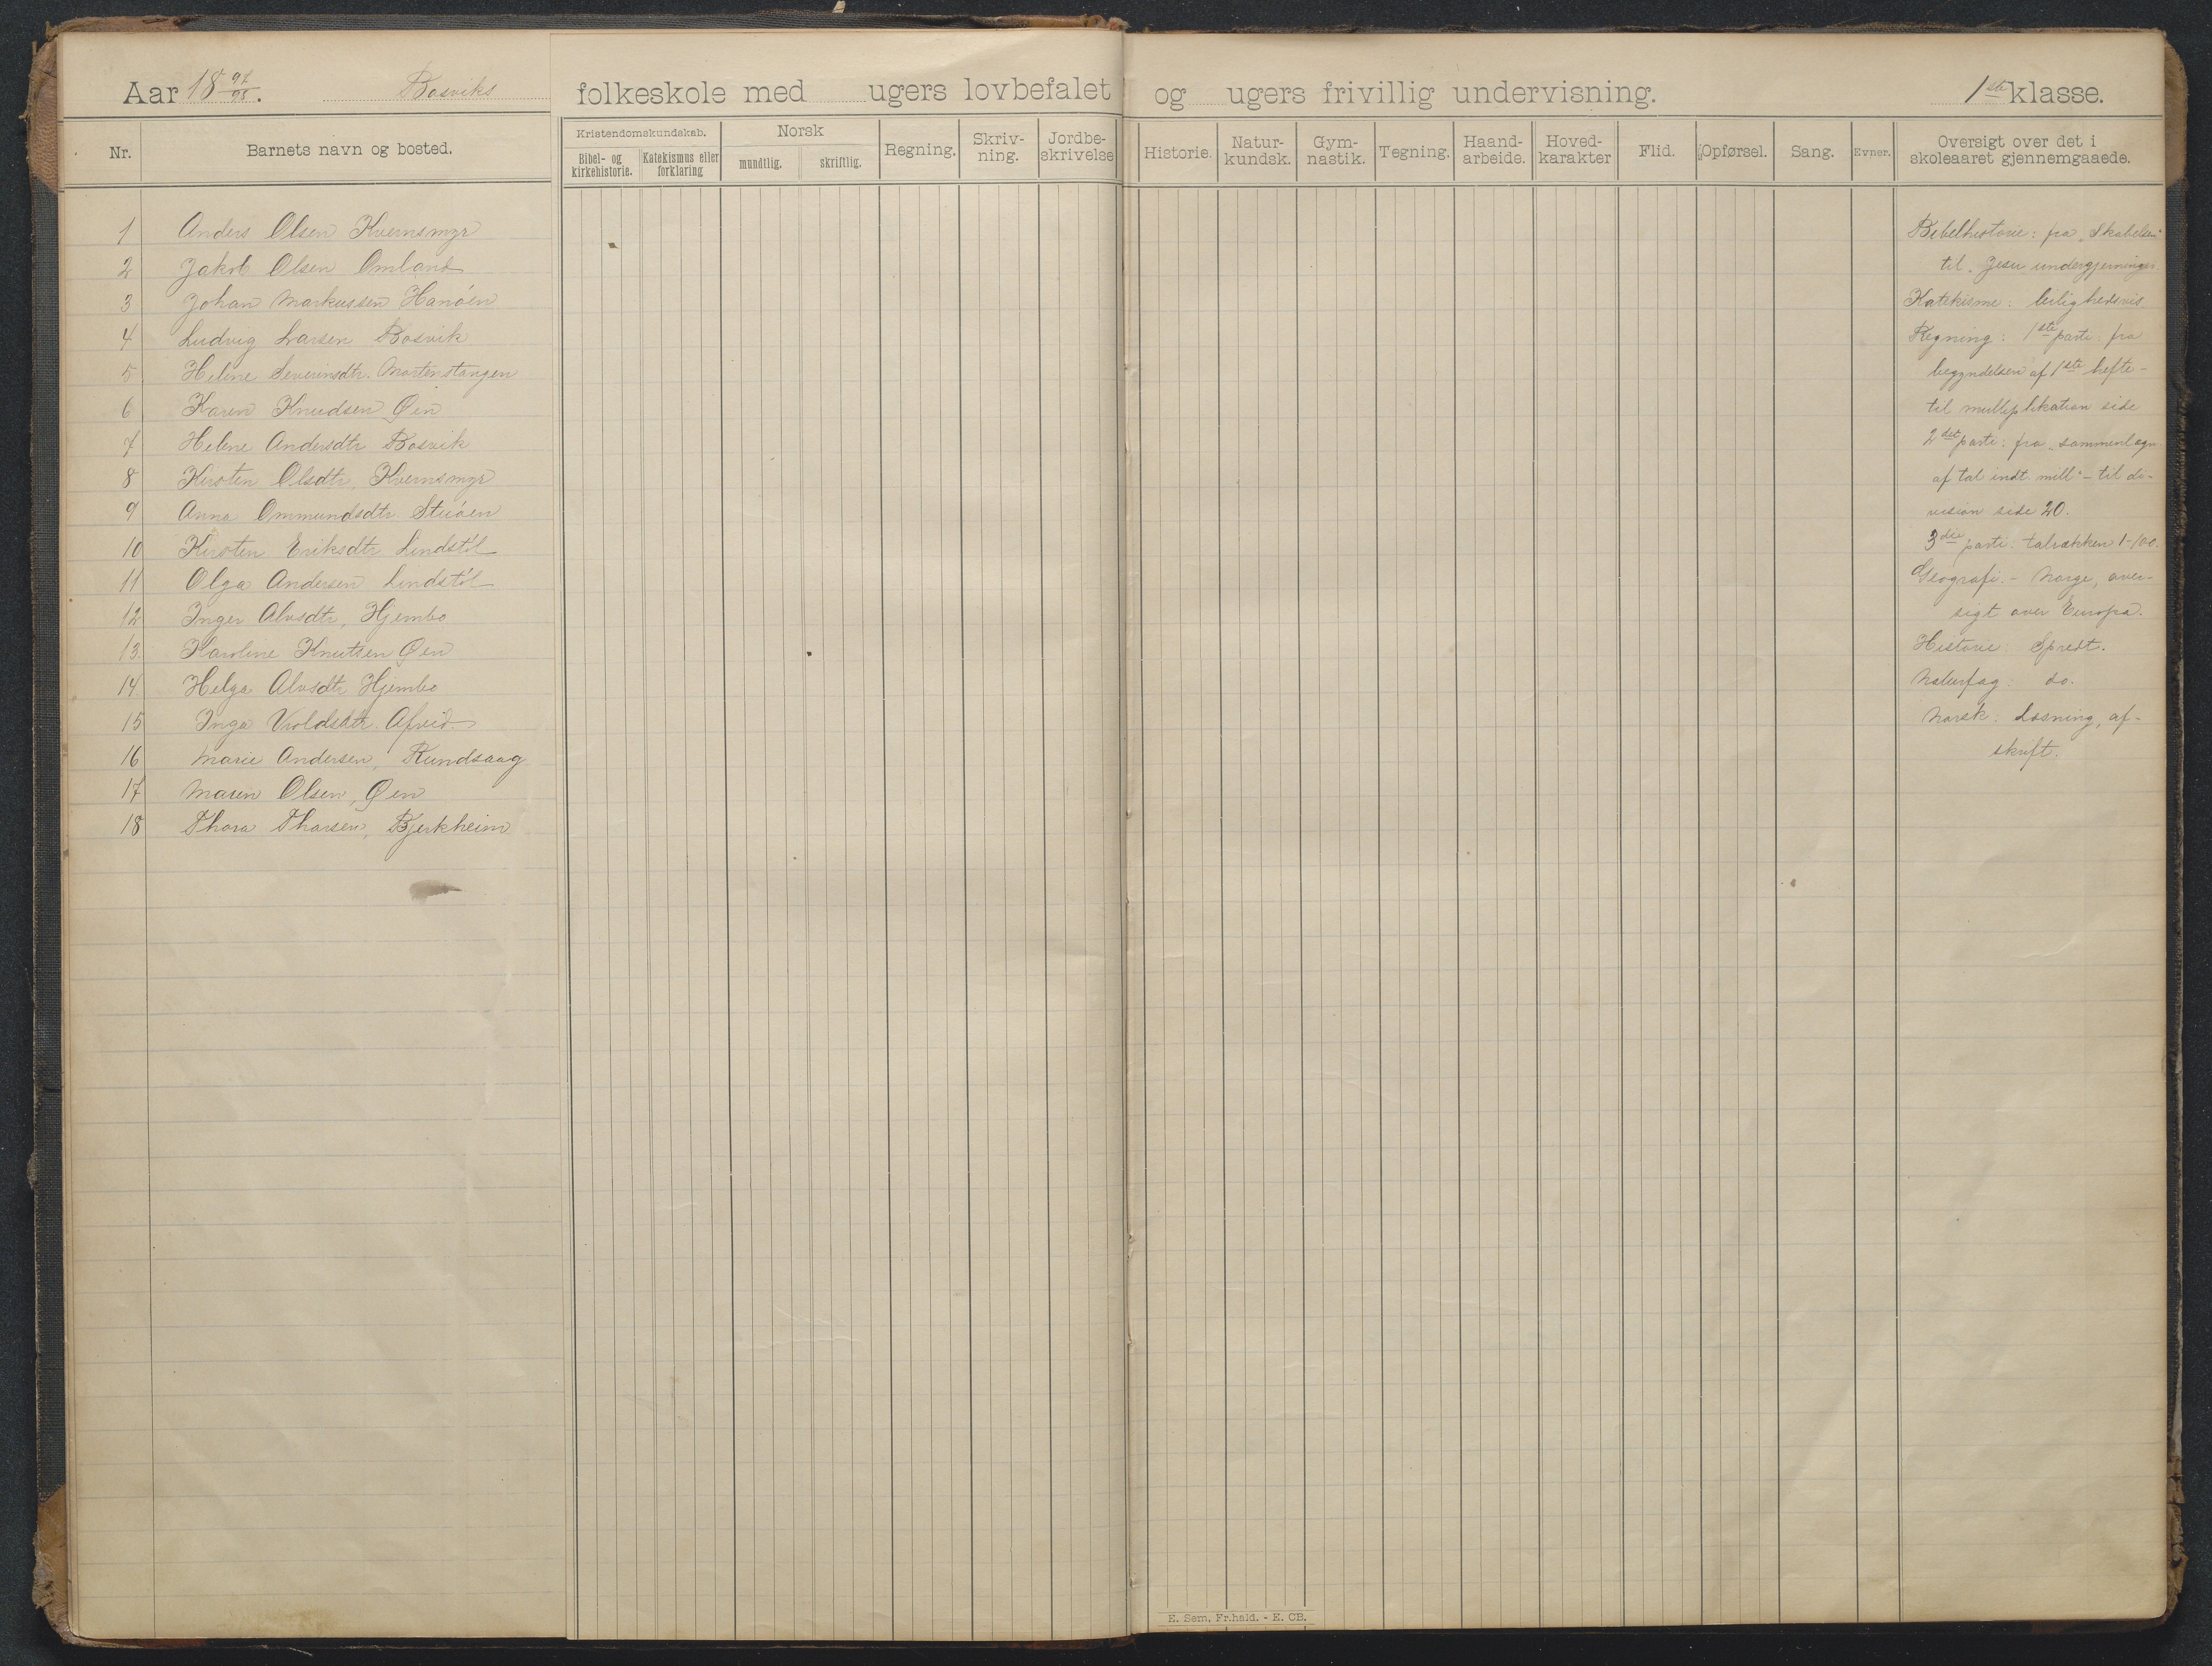 Aar 18 97/98. Bosviks folkeskole med ugers lovbefalet og ugers frivillig undervisning. 1ste klasse.
Nr. Barnets navn og bosted. Kristendomskundskab. Norsk Regning. Skriv-ning. Jordbe-skrivelse Historie. Natur-kundsk. Gym-nastik. Tegning. Haand-arbeide. Hoved-karakter Flid. Opførsel. Sang. Evner. Oversigt over det i skoleaaret gjennemgaaede.
Bibel- og kirkehistorie. Katekismus eller forklaring mundtlig. skriftlig.
1 Anders Olsen Kvernsmyr
2 Jakob Olsen Omland
3 Johan Markussen Hanöen
4 Ludvig Larsen Bosvik
5 Helene Severinsdtr. Mortenstangen
6 Karen Knudsen Øen
7 Helene Andersdtr Bosvik
8 Kirsten Olsdtr, Kvernsmyr
9 Anna Ommundsdtr. Stuöen
10 Kirsten Eriksdtr Lindstöl
11 Olga Andersen Lindstöl
12 Inger Alvsdtr, Hjembo
13. Karoline Knutsen Øen
14 Helga Alvsdtr Hjembo
15 Inga Violdsdtr. Afveid
16 Marie Andersen, Rundsaag
17 Maren Olsen, Øen
18 Thora Tharsen, Bjerkheim
Bibelhistorie: fra "Skabelsen"
til "Jesu undergjerninger
Katekisme: leilighedsvis
Regning: 1ste parti: fra
begyndelsen af 1ste hefte -
til multiplikation side
2det parti: fra "sammenlægn.
af tal indt. mill" - til di-
vision side 20.
3die parti: talrækken 1-100.
Geografi. - Norge, over-
sigt over Europa.
Historie: Spredt.
Naturfag: do.
Norsk: Læsning, af-
skrift.
E. Sem, Fr.hald. - E. CB.